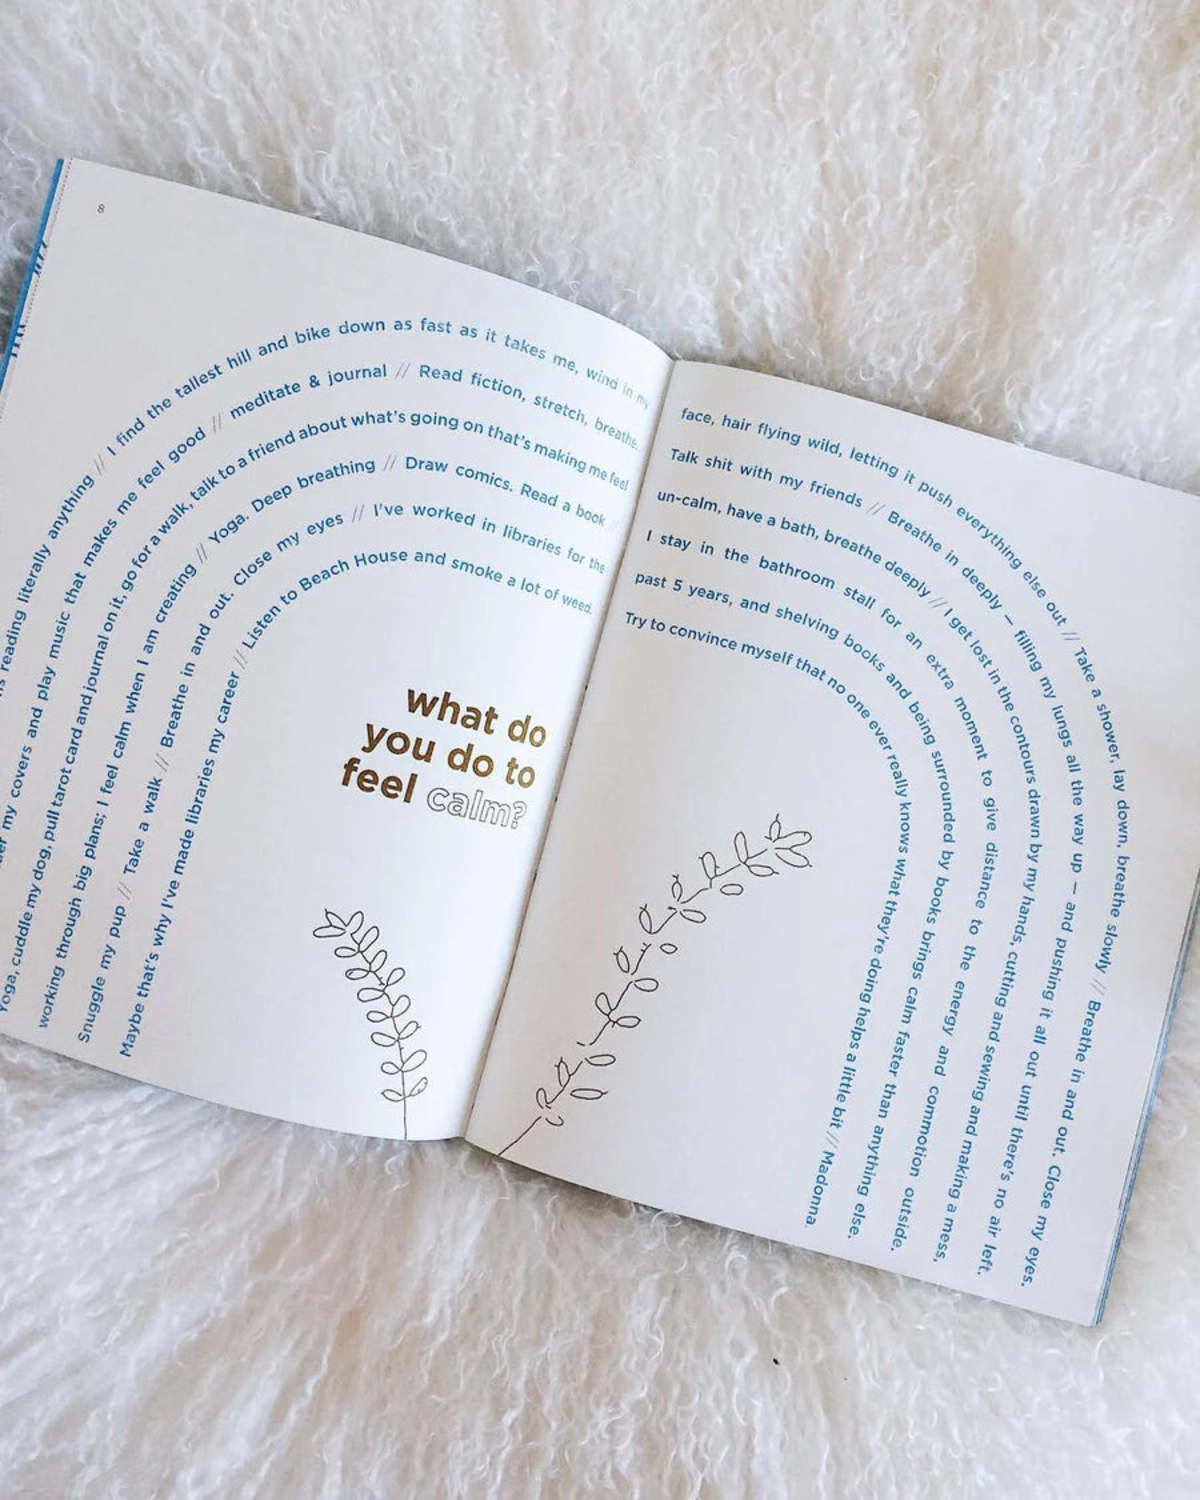 8
reading literally anything // I find the tallest hill and bike down as fast as it takes me, wind in my face, hair flying wild, letting it push everything else out // Take a shower, lay down, breathe slowly // Breathe in and out. Close my eyes.
my covers and play music that makes me feel good // meditate & journal // Read fiction, stretch, breathe. Talk shit with my friends // Breathe in deeply – filling my lungs all the way up – and pushing it all out until there's no air left.
Yoga, cuddle my dog, pull tarot card and journal on it, go for a walk, talk to a friend about what's going on that's making me feel un-calm, have a bath, breathe deeply // I get lost in the contours drawn by my hands, cutting and sewing and making a mess.
working through big plans; I feel calm when I am creating // Yoga. Deep breathing // Draw comics. Read a book // I stay in the bathroom stall for an extra moment to give distance to the energy and commotion outside.
Snuggle my pup // Take a walk // Breathe in and out. Close my eyes // I've worked in libraries for the past 5 years, and shelving books and being surrounded by books brings calm faster than anything else.
Maybe that's why I've made libraries my career // Listen to Beach House and smoke a lot of weed. Try to convince myself that no one ever really knows what they're doing helps a little bit // Madonna.
what do
you do to
feel calm?